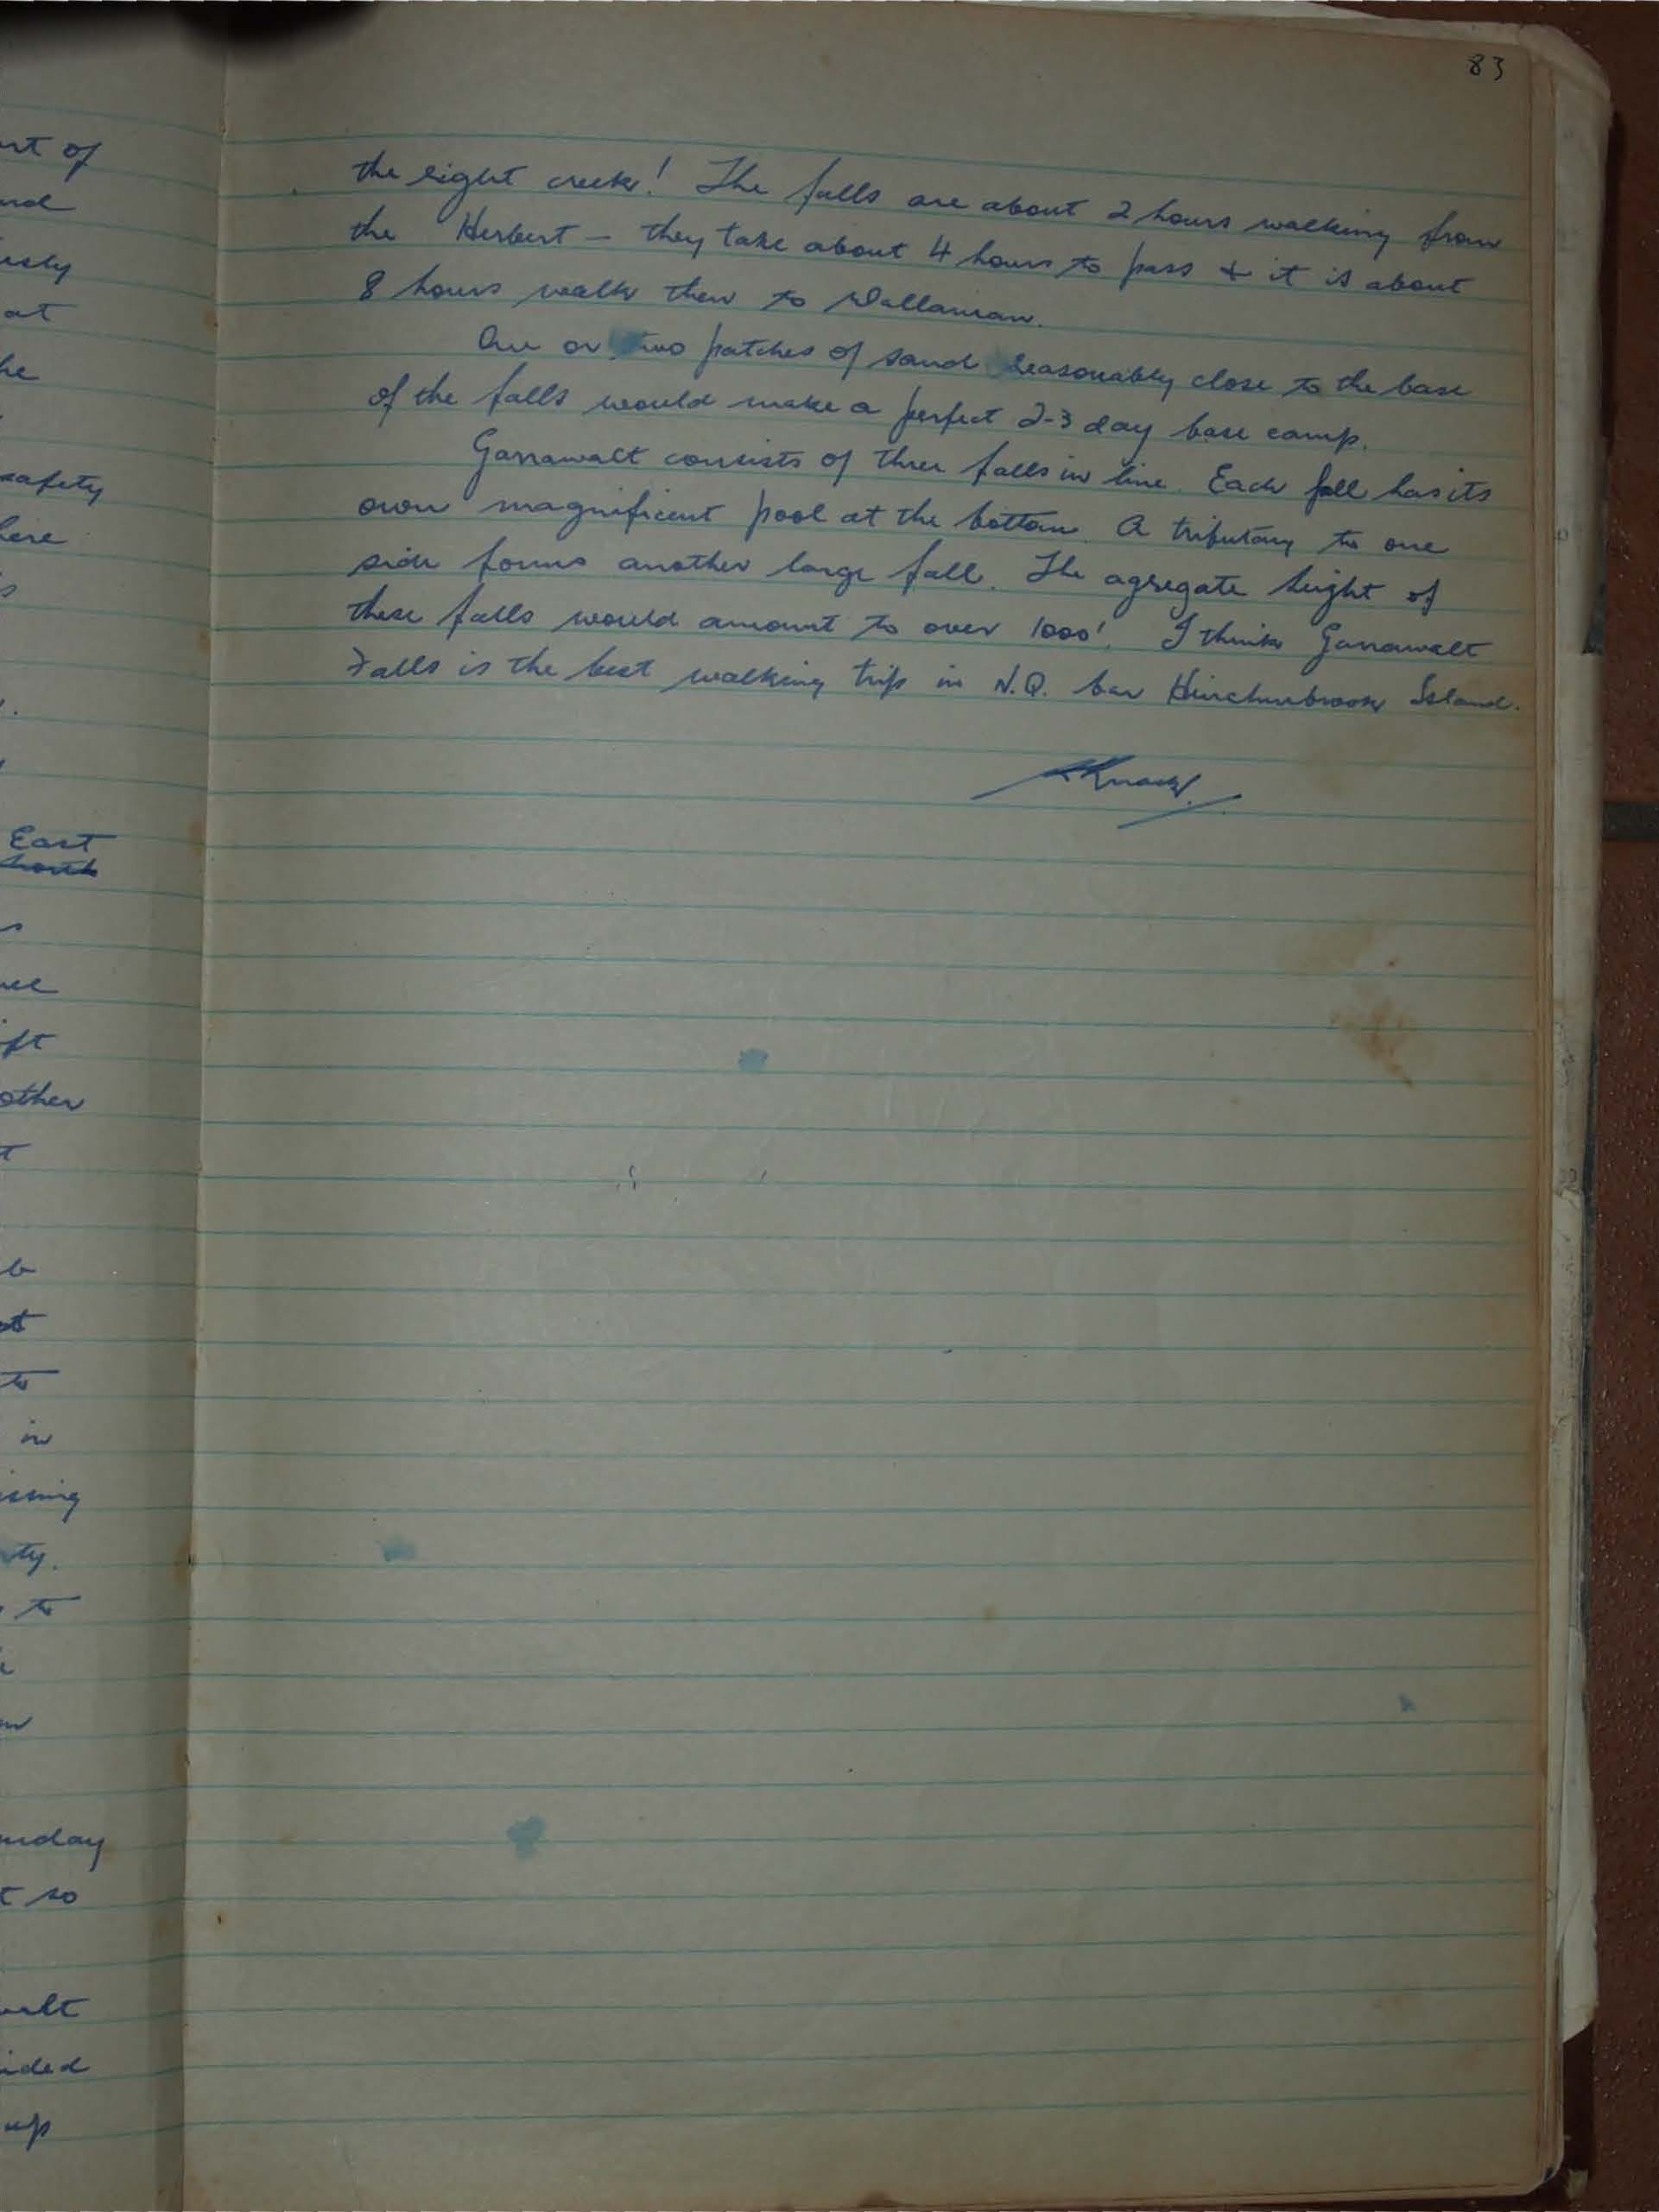 83
the right creek! The falls are about 2 hours walking from
the Herbert - they take about 4 hours to pass & it is about
8 hours walk then to Wallaman.
One or two patches of sand reasonably close to the base
of the falls would make a perfect 2-3 day base camp.
Garrawalt consists of three falls in line. Each fall has its
own magnificent pool at the bottom. A tributary to one
side forms another large fall. The agregate height of
these falls would amount to over 1000'. I think Garrawalt
Falls is the best walking trip in N.Q. bar Hinchinbrook Island.
of
at
safety
East
other
to
in
to
so
up